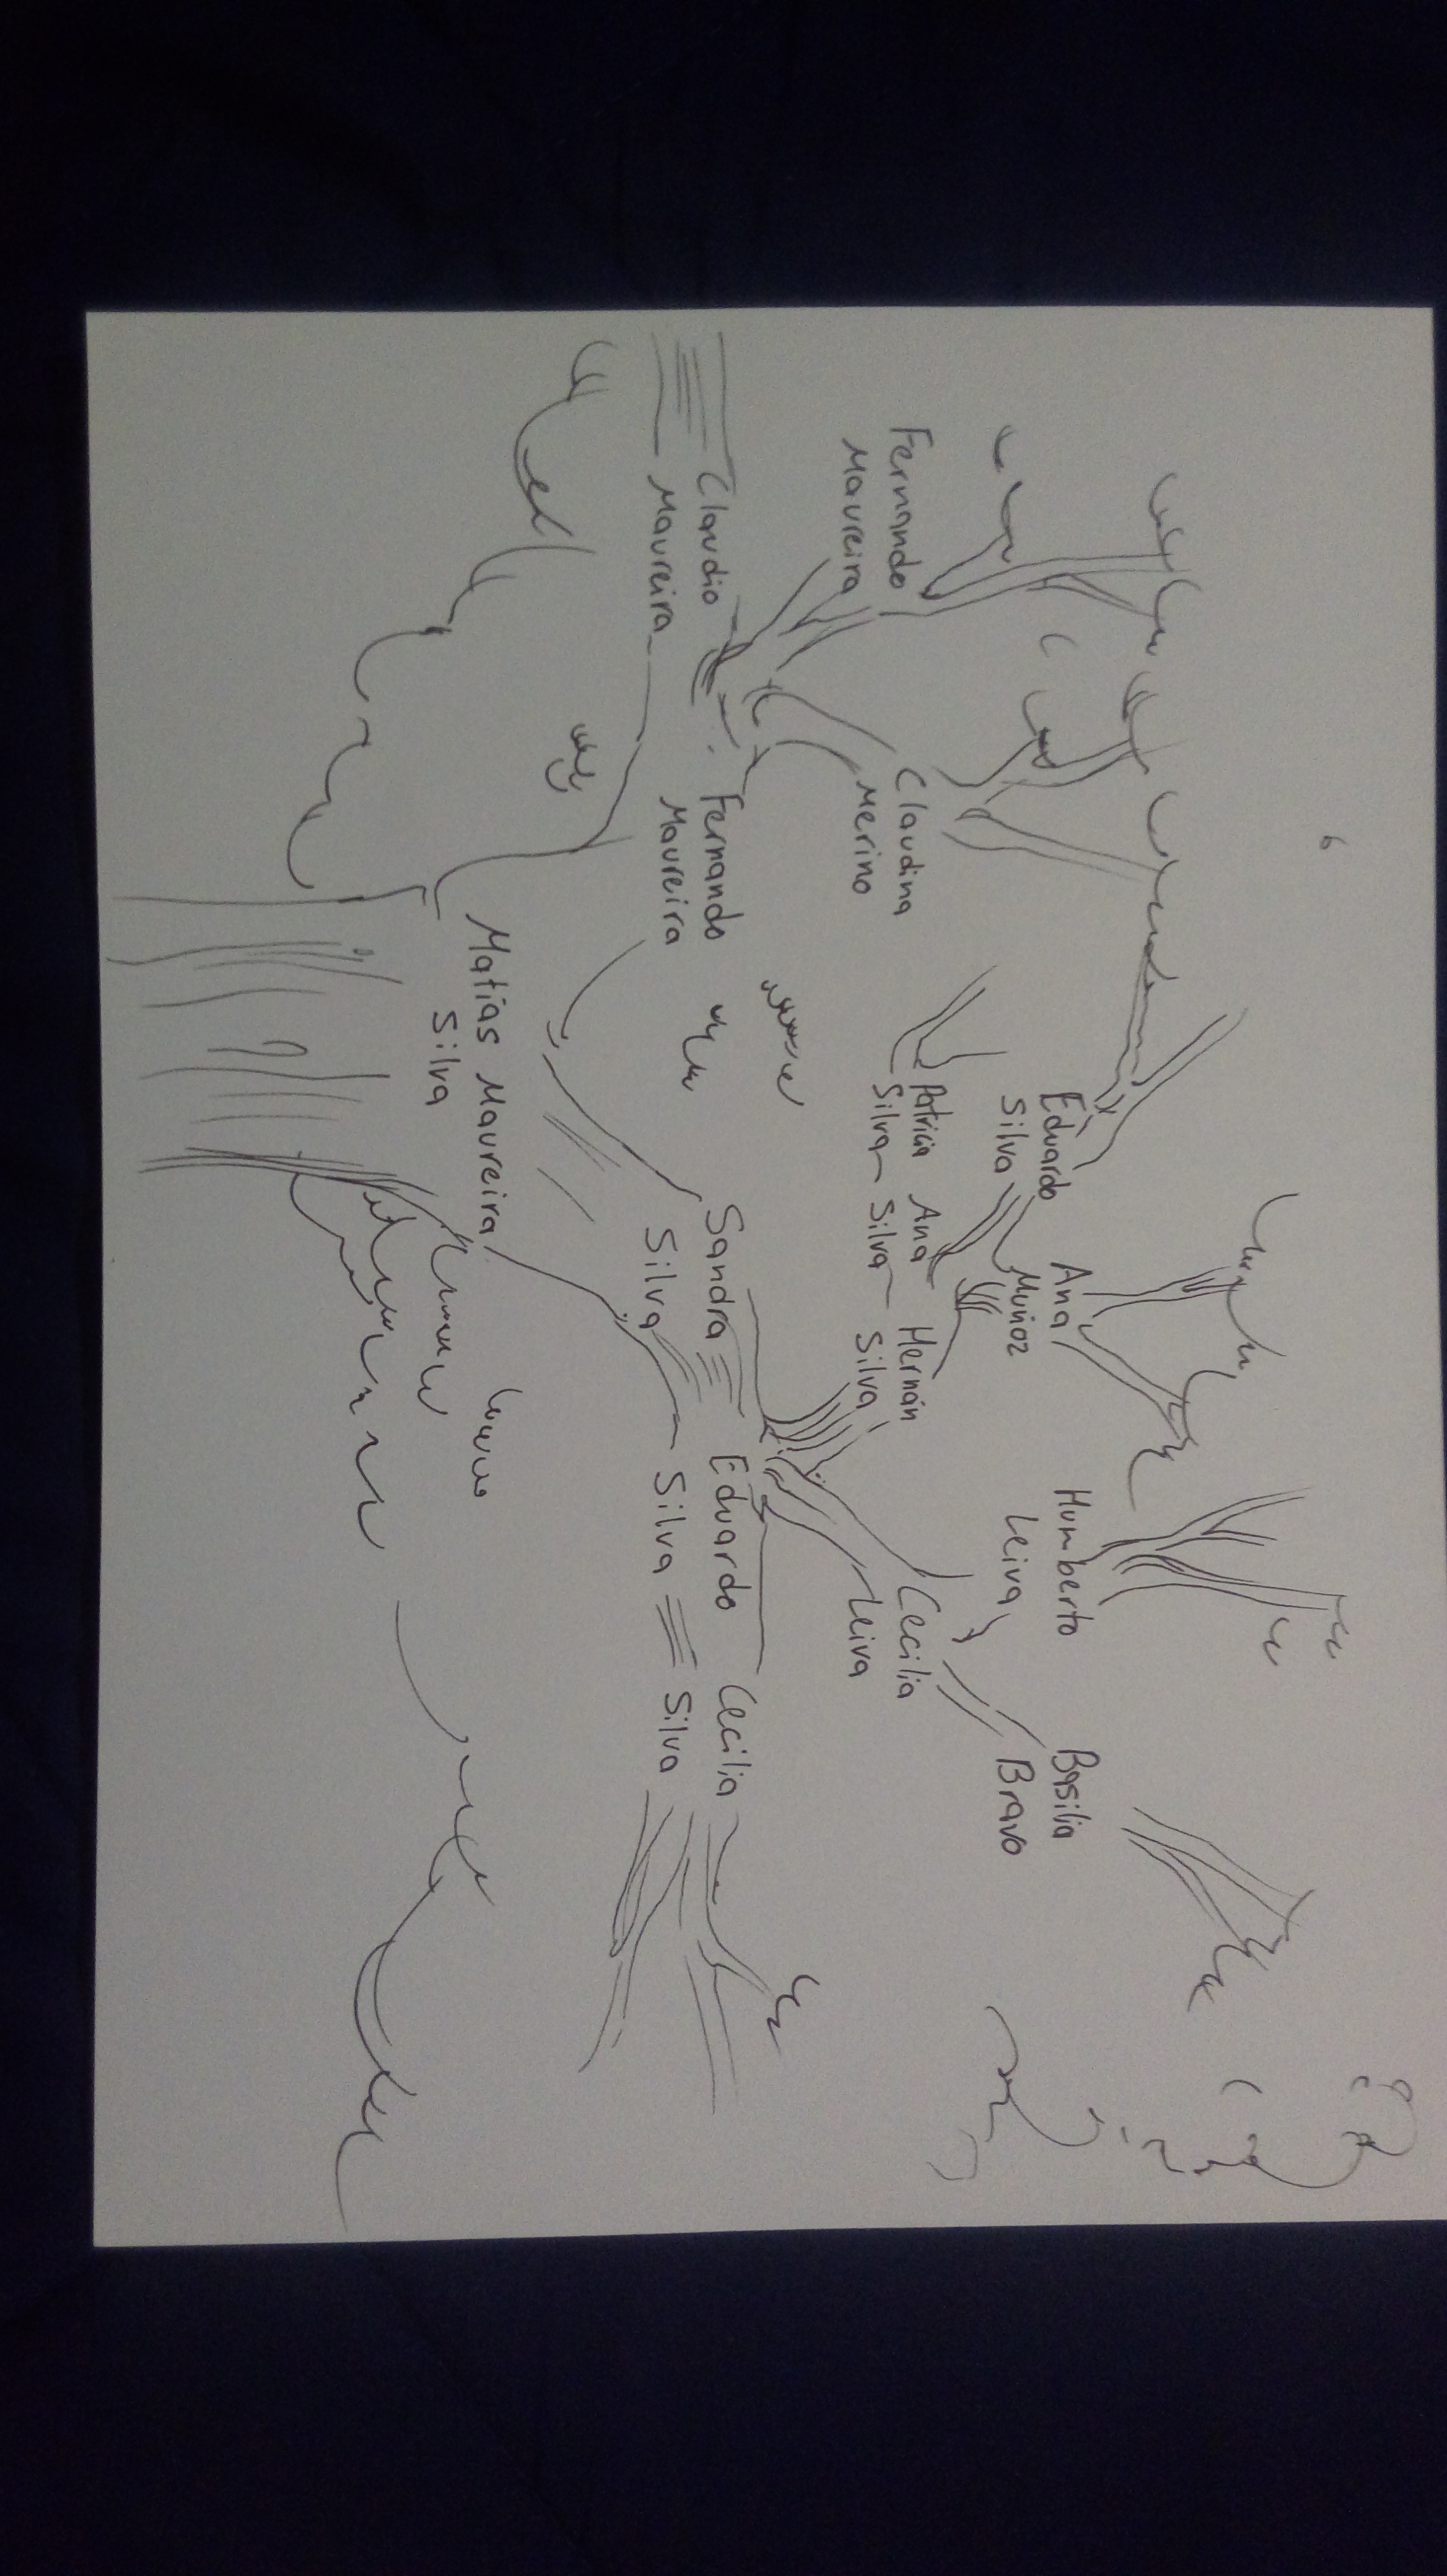 Eduardo
Silva
Ana
Muñoz
Humberto
Leiva
Basilia
Bravo
Fernando
Maureira
Claudina
Merino
Patricia
Silva
Ana
Silva
Hernán
Silva
Cecilia
Leiva
Claudio
Maureira
Fernando
Maureira
Sandra
Silva
Eduardo
Silva
Cecilia
Silva
Matías Maureira
Silva